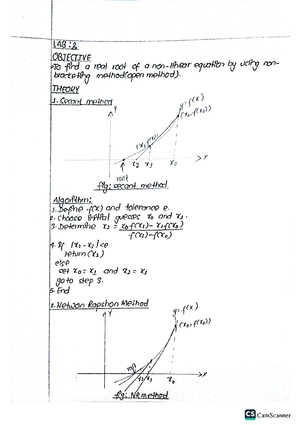 LAB:2
OBJECTIVE
To find a real root of a non-linear equation by using non-
bracketing method(open method).
THEORY
1. Secant method
Y
y=f(x)
(x0,f(x0))
(x1,f(x1))
root
x2
x1
x0
X
fig: secant method
Algorithm:
1. Define f(x) and tolerance e.
2. Choose initial guesses x0 and x1.
3. Determine x2 = x0f(x1)-x1f(x0)
f(x1)-f(x0)
4. If |x2-x1|<e
return(x2)
else
set x0=x1 and x1=x2
go to step 3.
5. End
2. Netwon Rapshon Method
Y
y=f(x)
(x0,f(x0))
root
x2
x1
x0
X
fig: NR method
CS CamScanner